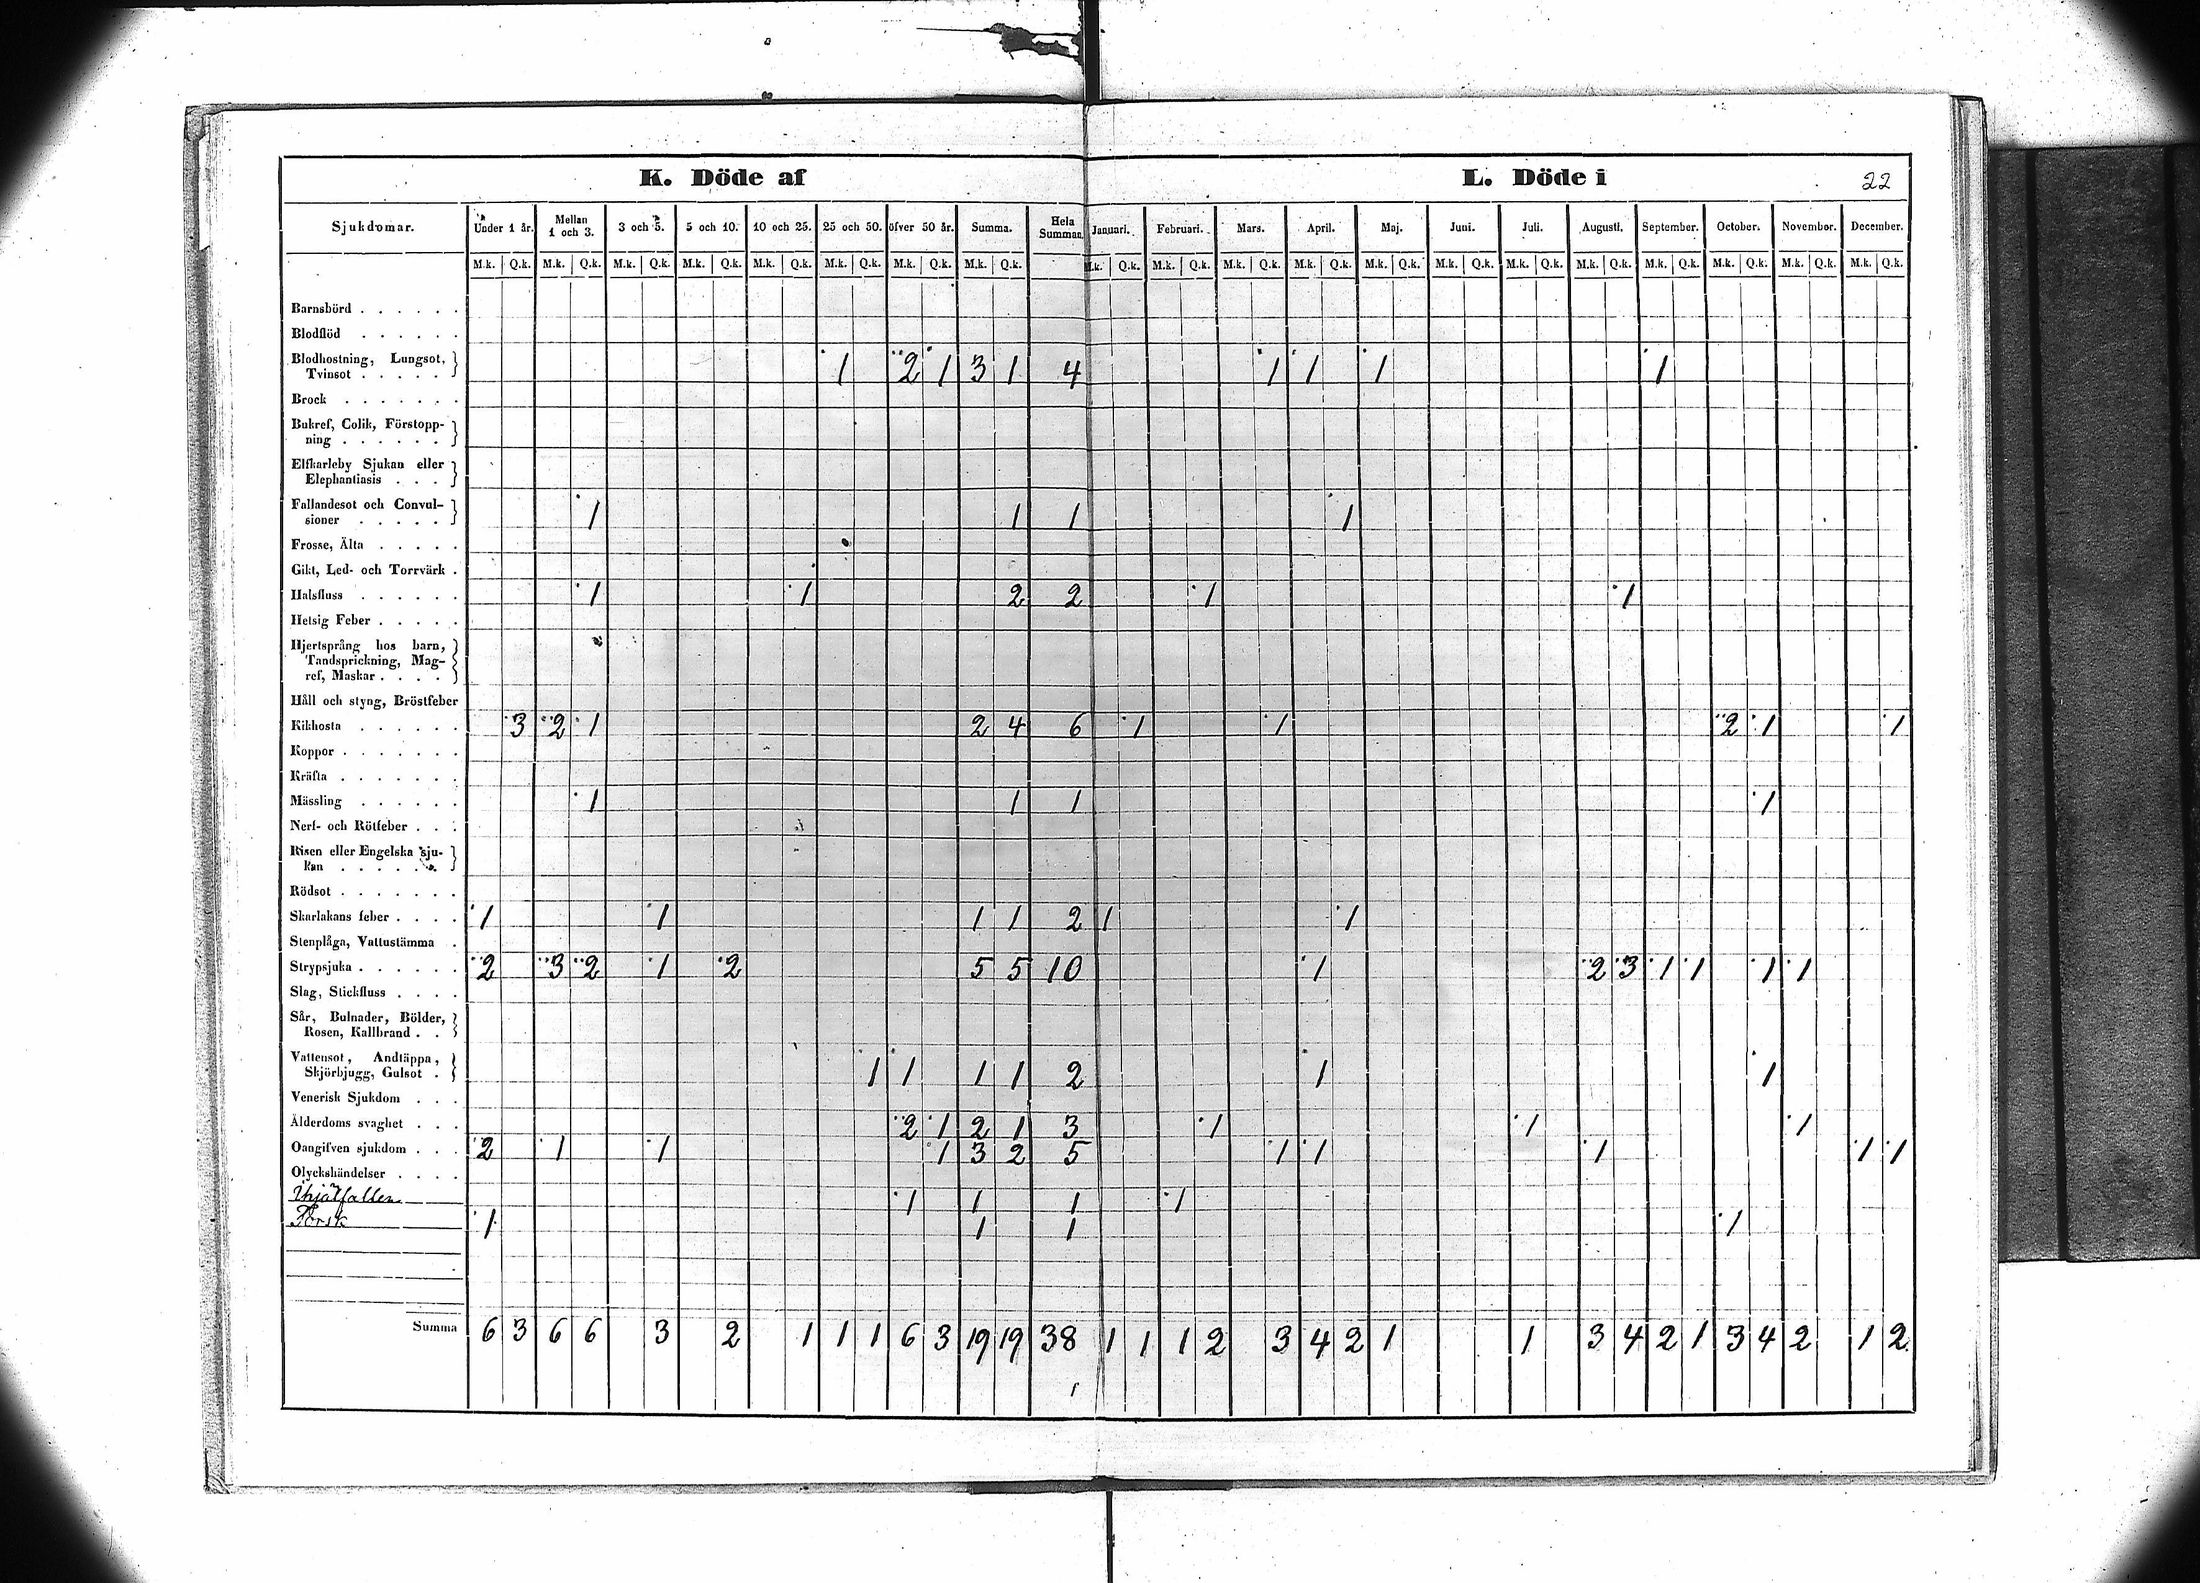 K. Döde af L. Döde i 22
Sjukdomar. Under 1 år. Mellan 1 och 3. 3 och 5. 5 och 10. 10 och 25. 25 och 50. öfver 50 år. Summa. Hela Summan. Januari. Februari. Mars. April. Maj. Juni. Juli. Augusti. September. October. November. December.
M.k. Q.k. M.k. Q.k. M.k. Q.k. M.k. Q.k. M.k. Q.k. M.k. Q.k. M.k. Q.k. M.k. Q.k. M.k. Q.k. M.k. Q.k. M.k. Q.k. M.k. Q.k. M.k. Q.k. M.k. Q.k. M.k. Q.k. M.k. Q.k. M.k. Q.k. M.k. Q.k. M.k. Q.k. M.k. Q.k.
Barnsbörd . . . . . .
Blodflöd . . . . . .
Blodhostning, Lungsot,
Tvinsot . . . . . 1 2 1 3 1 4 1 1 1 1
Brock . . . . . . .
Bukref, Colik, Förstopp-
ning . . . . . .
Elfkarleby Sjukan eller
Elephantiasis . . .
Fallandesot och Convul-
sioner . . . . . 1 1 1 1
Frosse, Älta . . . . .
Gikt, Led- och Torrvärk .
Halsfluss . . . . . . 1 1 2 2 1 1
Hetsig Feber . . . . .
Hjertsprång hos barn,
Tandsprickning, Mag-
ref, Maskar . . . .
Håll och styng, Bröstfeber
Kikhosta . . . . . . 3 2 1 2 4 6 1 1 2 1 1
Koppor . . . . . . .
Kräfta . . . . . . .
Mässling . . . . . . 1 1 1 1
Nerf- och Rötfeber . . .
Risen eller Engelska sju-
kan . . . . . .
Rödsot . . . . . . .
Skarlakans feber . . . . 1 1 1 1 2 1 1
Stenplåga, Vattustämma .
Strypsjuka . . . . . . 2 3 2 1 2 5 5 10 1 2 3 1 1 1 1
Slag, Stickfluss . . . .
Sår, Bulnader, Bölder,
Rosen, Kallbrand . .
Vattensot, Andtäppa,
Skjörbjugg, Gulsot . 1 1 1 1 2 1 1
Venerisk Sjukdom . . .
Ålderdoms svaghet . . . 2 1 2 1 3 1 1 1
Oangifven sjukdom . . . 2 1 1 1 3 2 5 1 1 1 1 1
Olyckshändelser . . . .
Ihjälfallen 1 1 1 1
Torsk 1 1 1 1
Summa 6 3 6 6 3 2 1 1 1 6 3 19 19 38 1 1 1 2 3 4 2 1 1 3 4 2 1 3 4 2 1 2